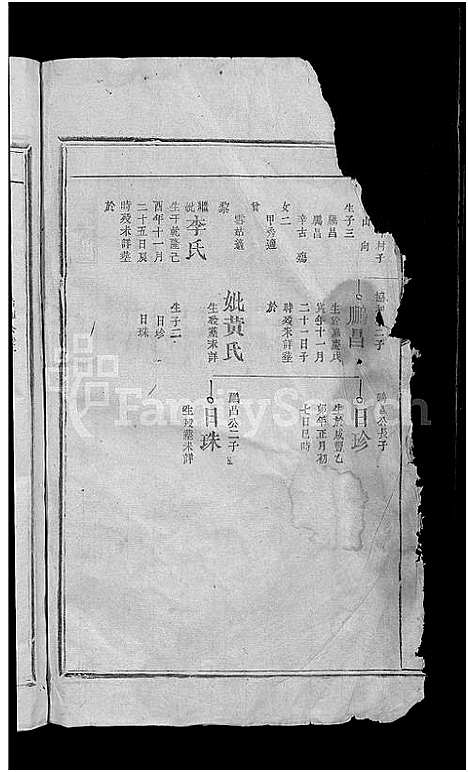 村子
山向
生子三
鵬昌
鳳昌
辛古殤
女二
甲秀適
曾
雪姑適
黎
繼妣李氏
生于乾隆己
酉年十一月
二十五日辰
時歿未詳塟
於
二子
鵬昌
生於嘉慶戊
寅年十一月
二十一日子
時歿未詳塟
於
妣黄氏
生歿塟未詳
生子二
日珍
日珠
鵬昌公長子
日珍
生於咸豐乙
卯年正月初
七日巳時
鵬昌公二子
日珠
生歿塟未詳
FamilySearch